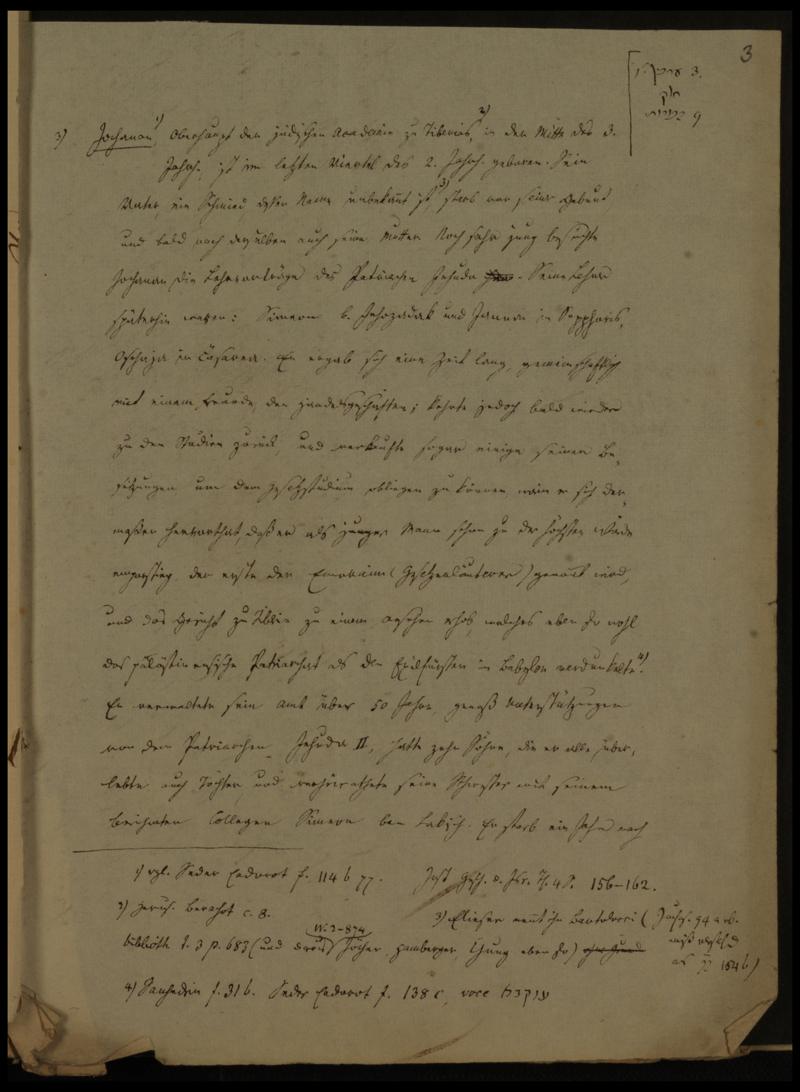 3
3)
Jochanan 1) Oberhaupt der jüdischen Academie zu Tiberias, 2) in der Mitte des 3.
Jahrh., ist im letzten Viertel des 2. Jahrh. geboren. Sein
Vater, ein Schmied dessen Name unbekannt ist, 3) starb vor seiner Geburt
und bald nach derselben auch seine Mutter. Noch sehr jung besuchte
Jochanan die Lehrvorträge des Patriarchen Jehuda. Seine Lehrer
späterhin waren: Simeon b. Jehozadak und Jannai in Sepphoris,
Oschaja in Cäsarea. Er ergab sich eine Zeit lang, gemeinschaftlich
mit einem Freunde, den Handelsgeschäften; kehrte jedoch bald wieder
zu den Studien zurück, und verkaufte sogar einige seiner Be-
sitzungen um dem Gesetzstudium obliegen zu können, worin er sich der-
maßen hervorthat, daß er als junger Mann schon zu der höchsten Würde
emporstieg, der erste der Emoraim (Gesetzerläuterer) genannt wird,
und das Gericht zu Tiberias zu einem Ansehen erhob, welches eben so wohl
das palästinensische Patriarchat als den Exilfürsten in Babylon verdunkelte 4).
Er verwaltete sein Amt über 50 Jahre, genoß Unterstützungen
von dem Patriarchen Jehuda II, hatte zehn Söhne, die er alle über-
lebte, auch Töchter, und verheirathete seine Schwester mit seinem
berühmten Collegen Simeon ben Lakisch. Er starb ein Jahr nach
1) vgl. Seder hadorot f. 114 b
Jost Gesch. d. Isr. Th. 4 S. 156-162.
2) Jerus. Berachot c. 8.
3) Elieser nennt ihn Bartolocci (
biblioth. t. 3 p. 683 (und Jöcher, Hamberger, eben so)
4) Sanhedrin f. 31 b. Seder hadorot f. 138 c, voce עוקבא